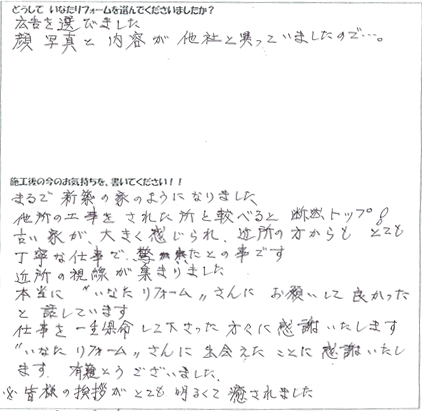 どうして いなたリフォームを選んでくださいましたか？
広告を選びました
顔写真と内容が他社と異っていましたので…。
施工後の今のお気持ちを、書いてください！！
まるで新築の家のようになりました
他所の工事をされた所と較べると断然トップ
古い家が、大きく感じられ、近所の方からもとても
丁寧な仕事で、たとの事です
近所の視線が集まりました
本当に〝いなたリフォーム〟さんにお願いして良かった
と話しています
仕事を一生懸命して下さった方々に感謝いたします
〝いなたリフォーム〟さんに出会えたことに感謝いたし
ます。有難とうございました。
※皆様の挨拶がとても明るくて癒されました